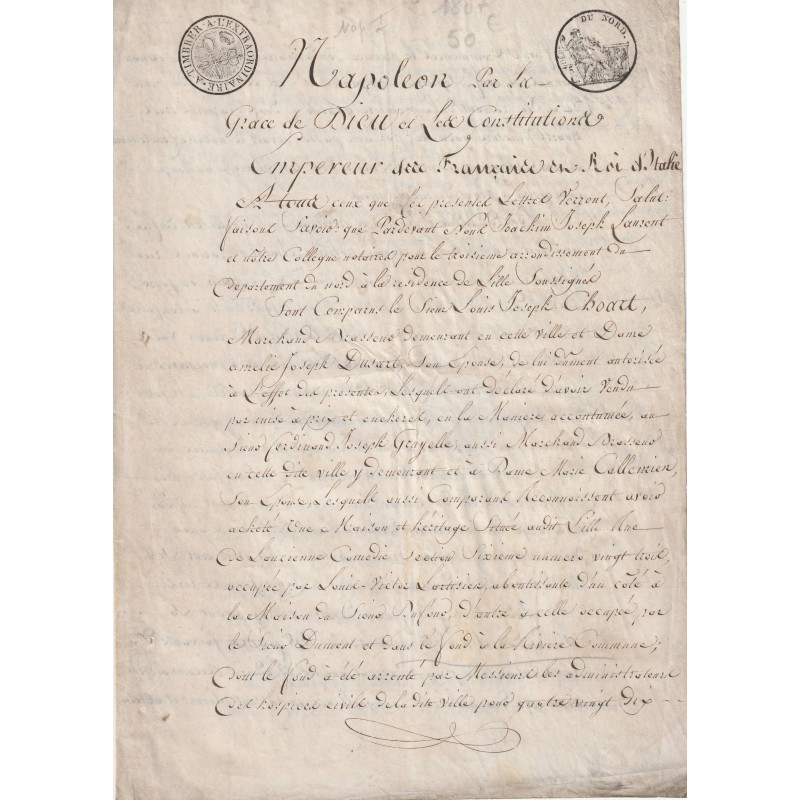 A TIMBRER A L'EXTRAORDINAIRE
DU NORD.
Nap I 1807
50 c
Napoleon Par La
Grace de Dieu et Les Constitutions
Empereur des Français en Roi d'Italie
A tous ceux que Ces presentes Lettres Verront, Salut:
faisons Savoir que Pardevant Nous Joachim Joseph Laurent
et nôtre Collegue notaires pour le troisieme arrondissement du
Departement du nord à la residence de Lille Soussignés
Sont Comparus le Sieur Louis Joseph Choart,
Marchand Brasseur demeurant en cette ville et Dame
amelie Joseph Dusart, Son Epouse, de lui dûment autorisée
à L'effet des présentes, lesquels ont déclaré d'avoir Vendu
par mise à prix et encheres, en la Maniere accoutumée, au
Sieur ferdinand Joseph Gruyelle, aussi Marchand Brasseur
en cette dite ville y demeurant et à Dame Marie Callewien,
Son Epouse, Lesquels aussi Comparans Reconnoissent avoir
acheté Une Maison et héritage Située audit Lille Rue
de L'ancienne Comedie section Sixieme numero vingt trois,
occupée par Louis-Victor Lartisien, aboutissante d'un côté à
la Maison du Sieur Dufour, d'autre à celle occupée par
le Sieur Dumont et dans le fond à la Riviere Commune;
dont le fond à été arrenté par Messieurs les administrateurs
des hospices civils de la dite ville pour quatre vingt dix